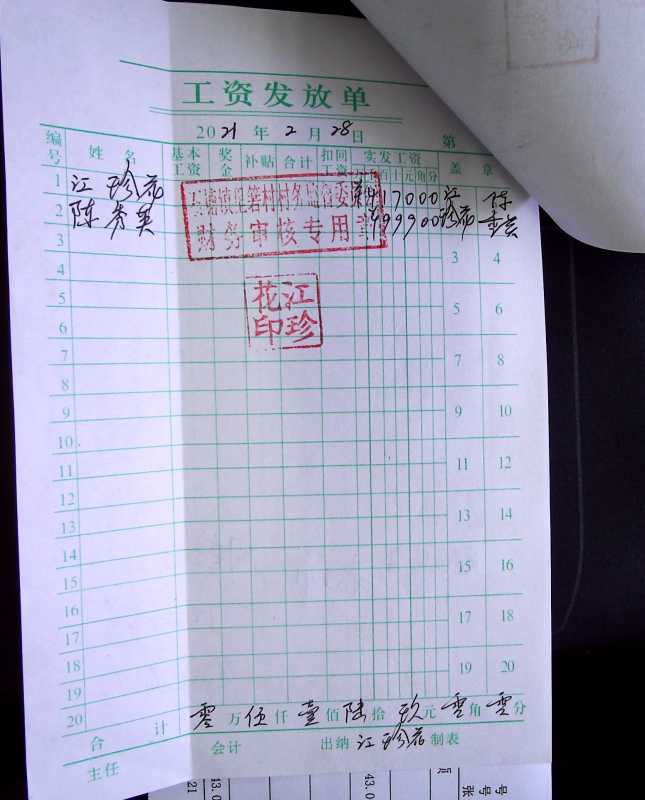 工资发放单
2021 年 2 月 28 日 第
编号 姓 名 基本工资 奖金 补贴 合计 扣回工资 实发工资 盖 章
百 十 元 角 分
1 江珍花 417000 江珍花 陈
2 陈 99900
财务审核专用章
3 3 4
4
花江
印珍
5 5 6
6
7 7 8
8
9 9 10
10
11 11 12
12
13 13 14
14
15 15 16
16
17 17 18
18
19 19 20
20
合 计 零万伍仟壹佰陆拾玖元零角零分
主任 会计 出纳 江珍花 制表